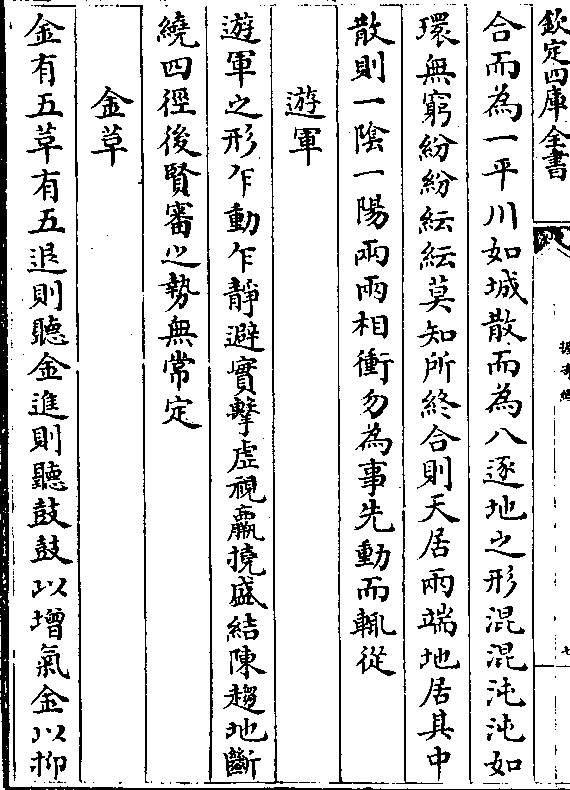 欽定四庫全書
握奇經
七
合而為一平川如城散而為八逐地之形混混沌沌如
環無窮紛紛紜紜莫知所終合則天居兩端地居其中
散則一陰一陽兩兩相衝勿為事先動而輒從
遊軍
遊軍之形乍動乍靜避實擊虛視羸撓盛結陳趨地斷
繞四徑後賢審之勢無常定
金草
金有五草有五退則聽金進則聽鼓鼓以增氣金以抑